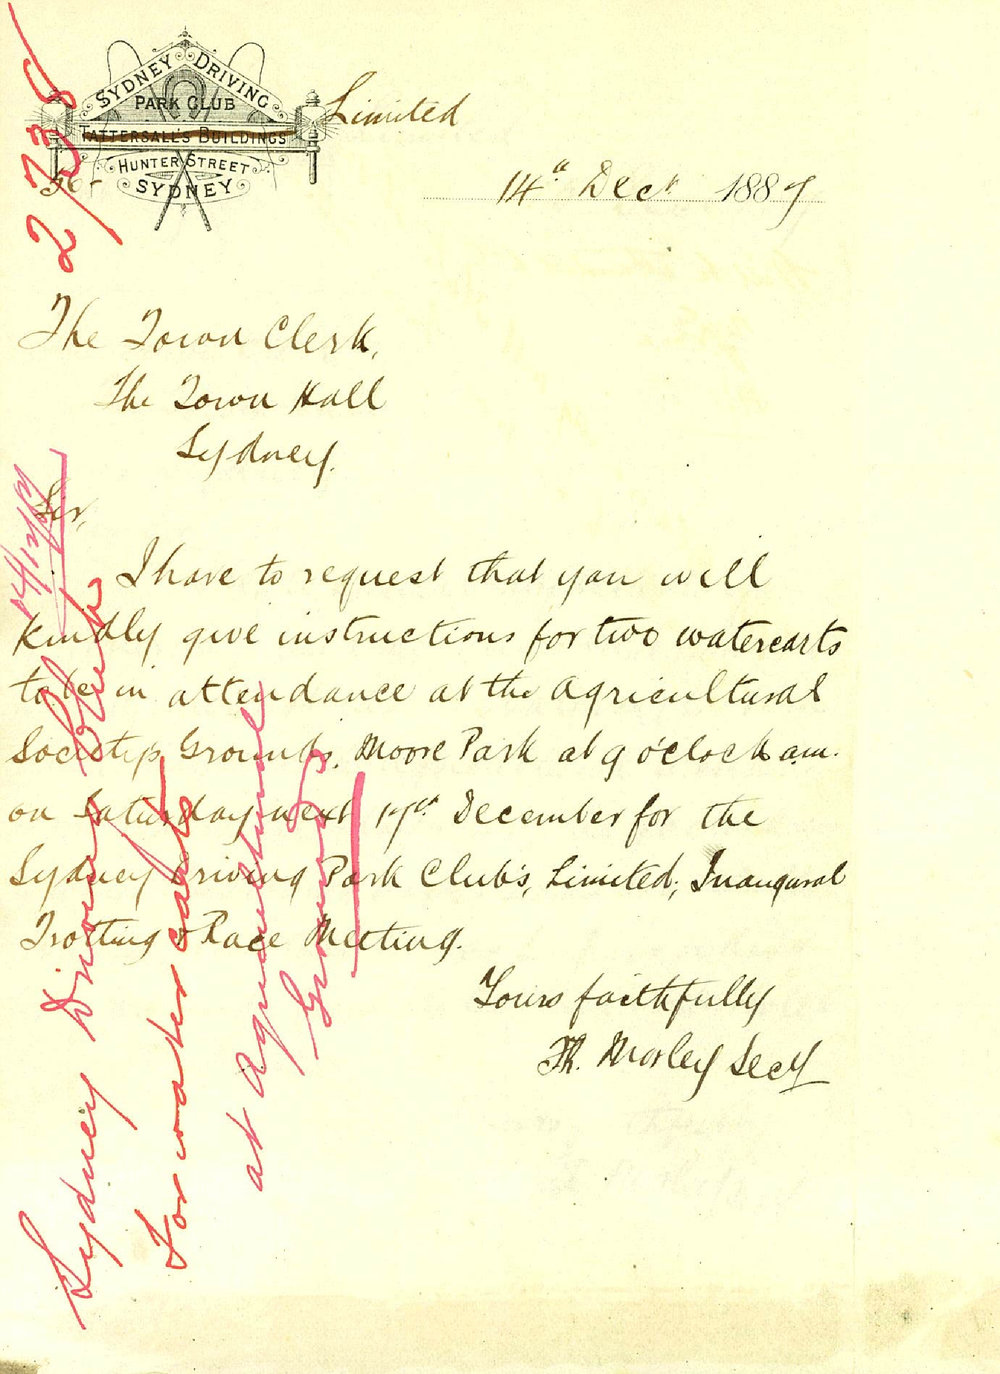 SYDNEY DRIVING
PARK CLUB
Limited
TATTERSALL'S BUILDINGS
HUNTER STREET
SYDNEY
14th Decr 1887
The Town Clerk,
The Town Hall
Sydney.
Sir,
I have to request that you will
kindly give instructions for two watercarts
to be in attendance at the Agricultural
Society's Grounds, Moore Park at 9 o'clock am.
on Saturday next 17th December for the
Sydney Driving Park Club's, Limited, Inaugural
Trotting & Race Meeting.
Yours faithfully
Morley Secy
14/12/87
Sydney Driving Club
For water carts
at Agricultural
Grounds